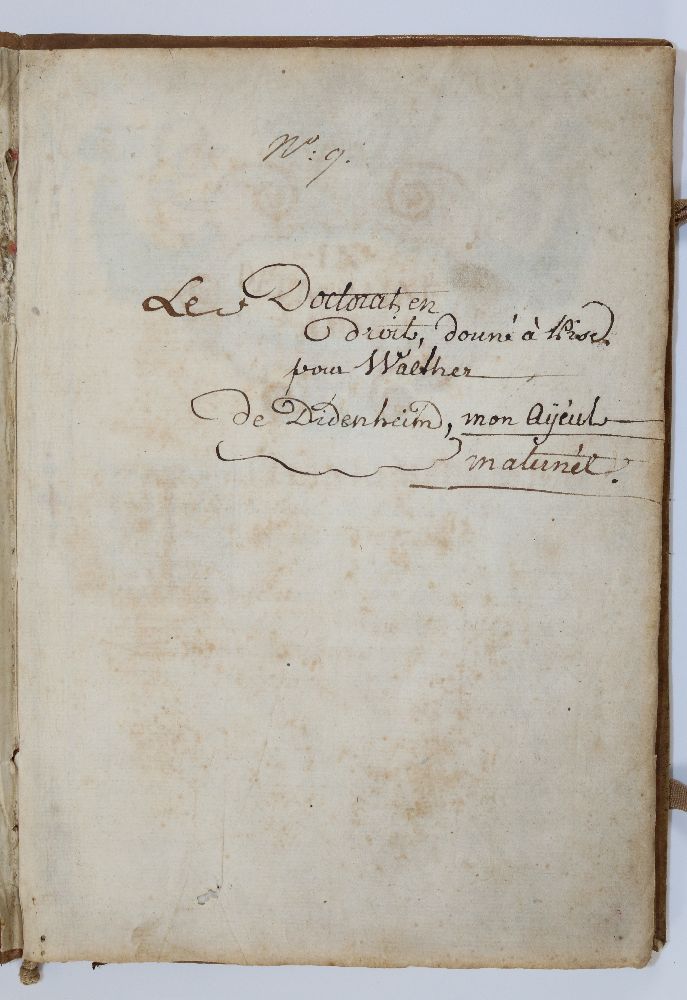 N.º: 9.
Le Doctorat, en
Droit, donné à Pise
pour Walther
de Didenheim, mon Aÿeul
maternel.